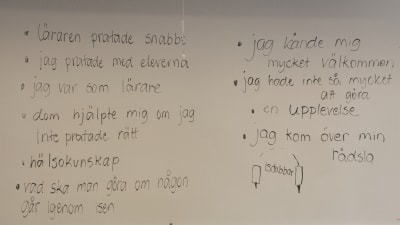 • läraren pratade snabbt
• jag pratade med eleverna
• jag var som lärare
• dom hjälpte mig om jag
inte pratade rätt
• hälsokunskap
• vad ska man göra om någon
går igenom isen
• jag kände mig
mycket välkommen
• jag hade inte så mycket
att göra
• en upplevelse
• jag kom över min
rädsla
isdubbar